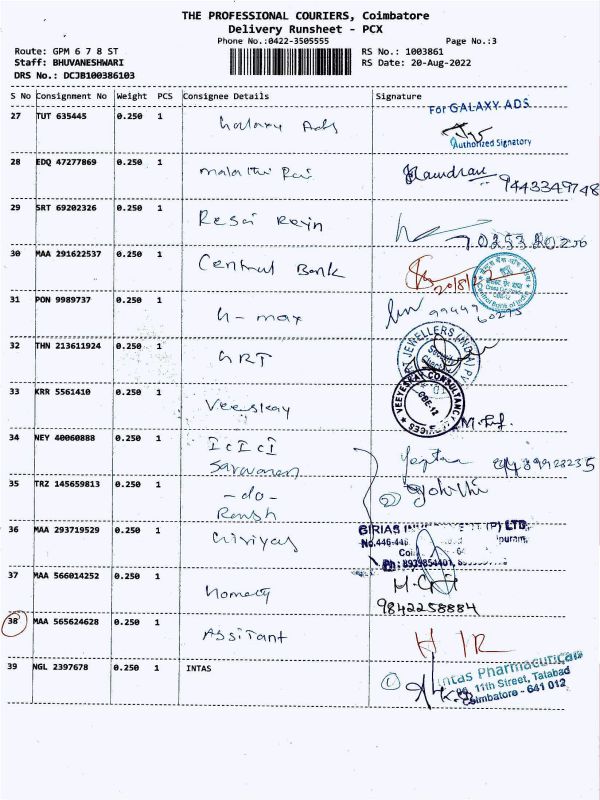 THE PROFESSIONAL COURIERS, Coimbatore
Delivery Runsheet - PCX
Phone No.:0422-3505555 Page No.:3
Route: GPM 6 7 8 ST RS No.: 1003861
Staff: BHUVANESHWARI RS Date: 20-Aug-2022
DRS No.: DCJB100386103
S No Consignment No Weight PCS Consignee Details Signature
27 TUT 635445 0.250 1 Galaxy Ads For GALAXY ADS
Authorized Signatory
28 EDQ 47277869 0.250 1 9443349748
29 SRT 69202326 0.250 1
30 MAA 291622537 0.250 1 Central Bank 20/8/22
Central Bank of India
31 PON 9989737 0.250 1 h-max
32 THN 213611924 0.250 1 GRT JEWELLERS (INDIA) PV
33 KRR 5561410 0.250 1 VEEYESKAY CONSULTANCY
CBE-12
34 NEY 40060888 0.250 1 ICICI
Saravanan
35 TRZ 145659813 0.250 1 -do-
36 MAA 293719529 0.250 1 GIRIAS (P) LTD
37 MAA 566014252 0.250 1
9842258884
38 MAA 565624628 0.250 1 Assitant
39 NGL 2397678 0.250 1 INTAS Intas Pharmaceutical
11th Street, Tatabad
Coimbatore - 641 012